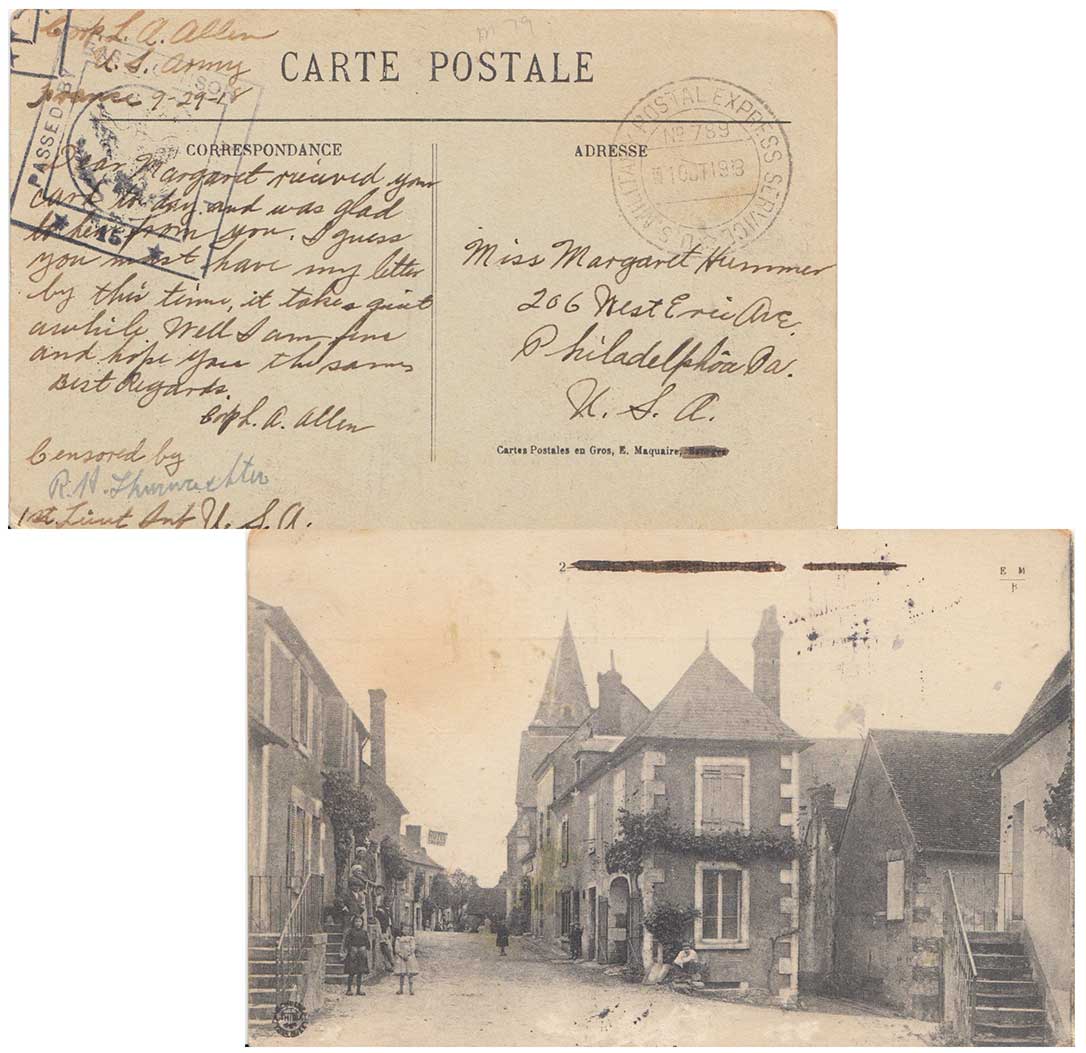 Corp. L. A. Allen
U. S. Army
France 9-29-18
m 79
CARTE POSTALE
PASSED BY
15
CORRESPONDANCE
ADRESSE
U.S. MILITARY POSTAL EXPRESS SERVICE
No 789
1 OCT 1918
Dear Margaret rieived your
card to day and was glad
to hear from you. I guess
you must have my letter
by this time, it takes quit
awhile Well I am fine
and hope you the same
Best Regards.
Corp L. A. Allen
Censored by
R. H.
1st. Lieut Inf U. S. A.
Miss Margaret Hummer
206 West Erie Ave.
Philadelphia Pa.
U. S. A.
Cartes Postales en Gros, E. Maquaire,
2
E M
B